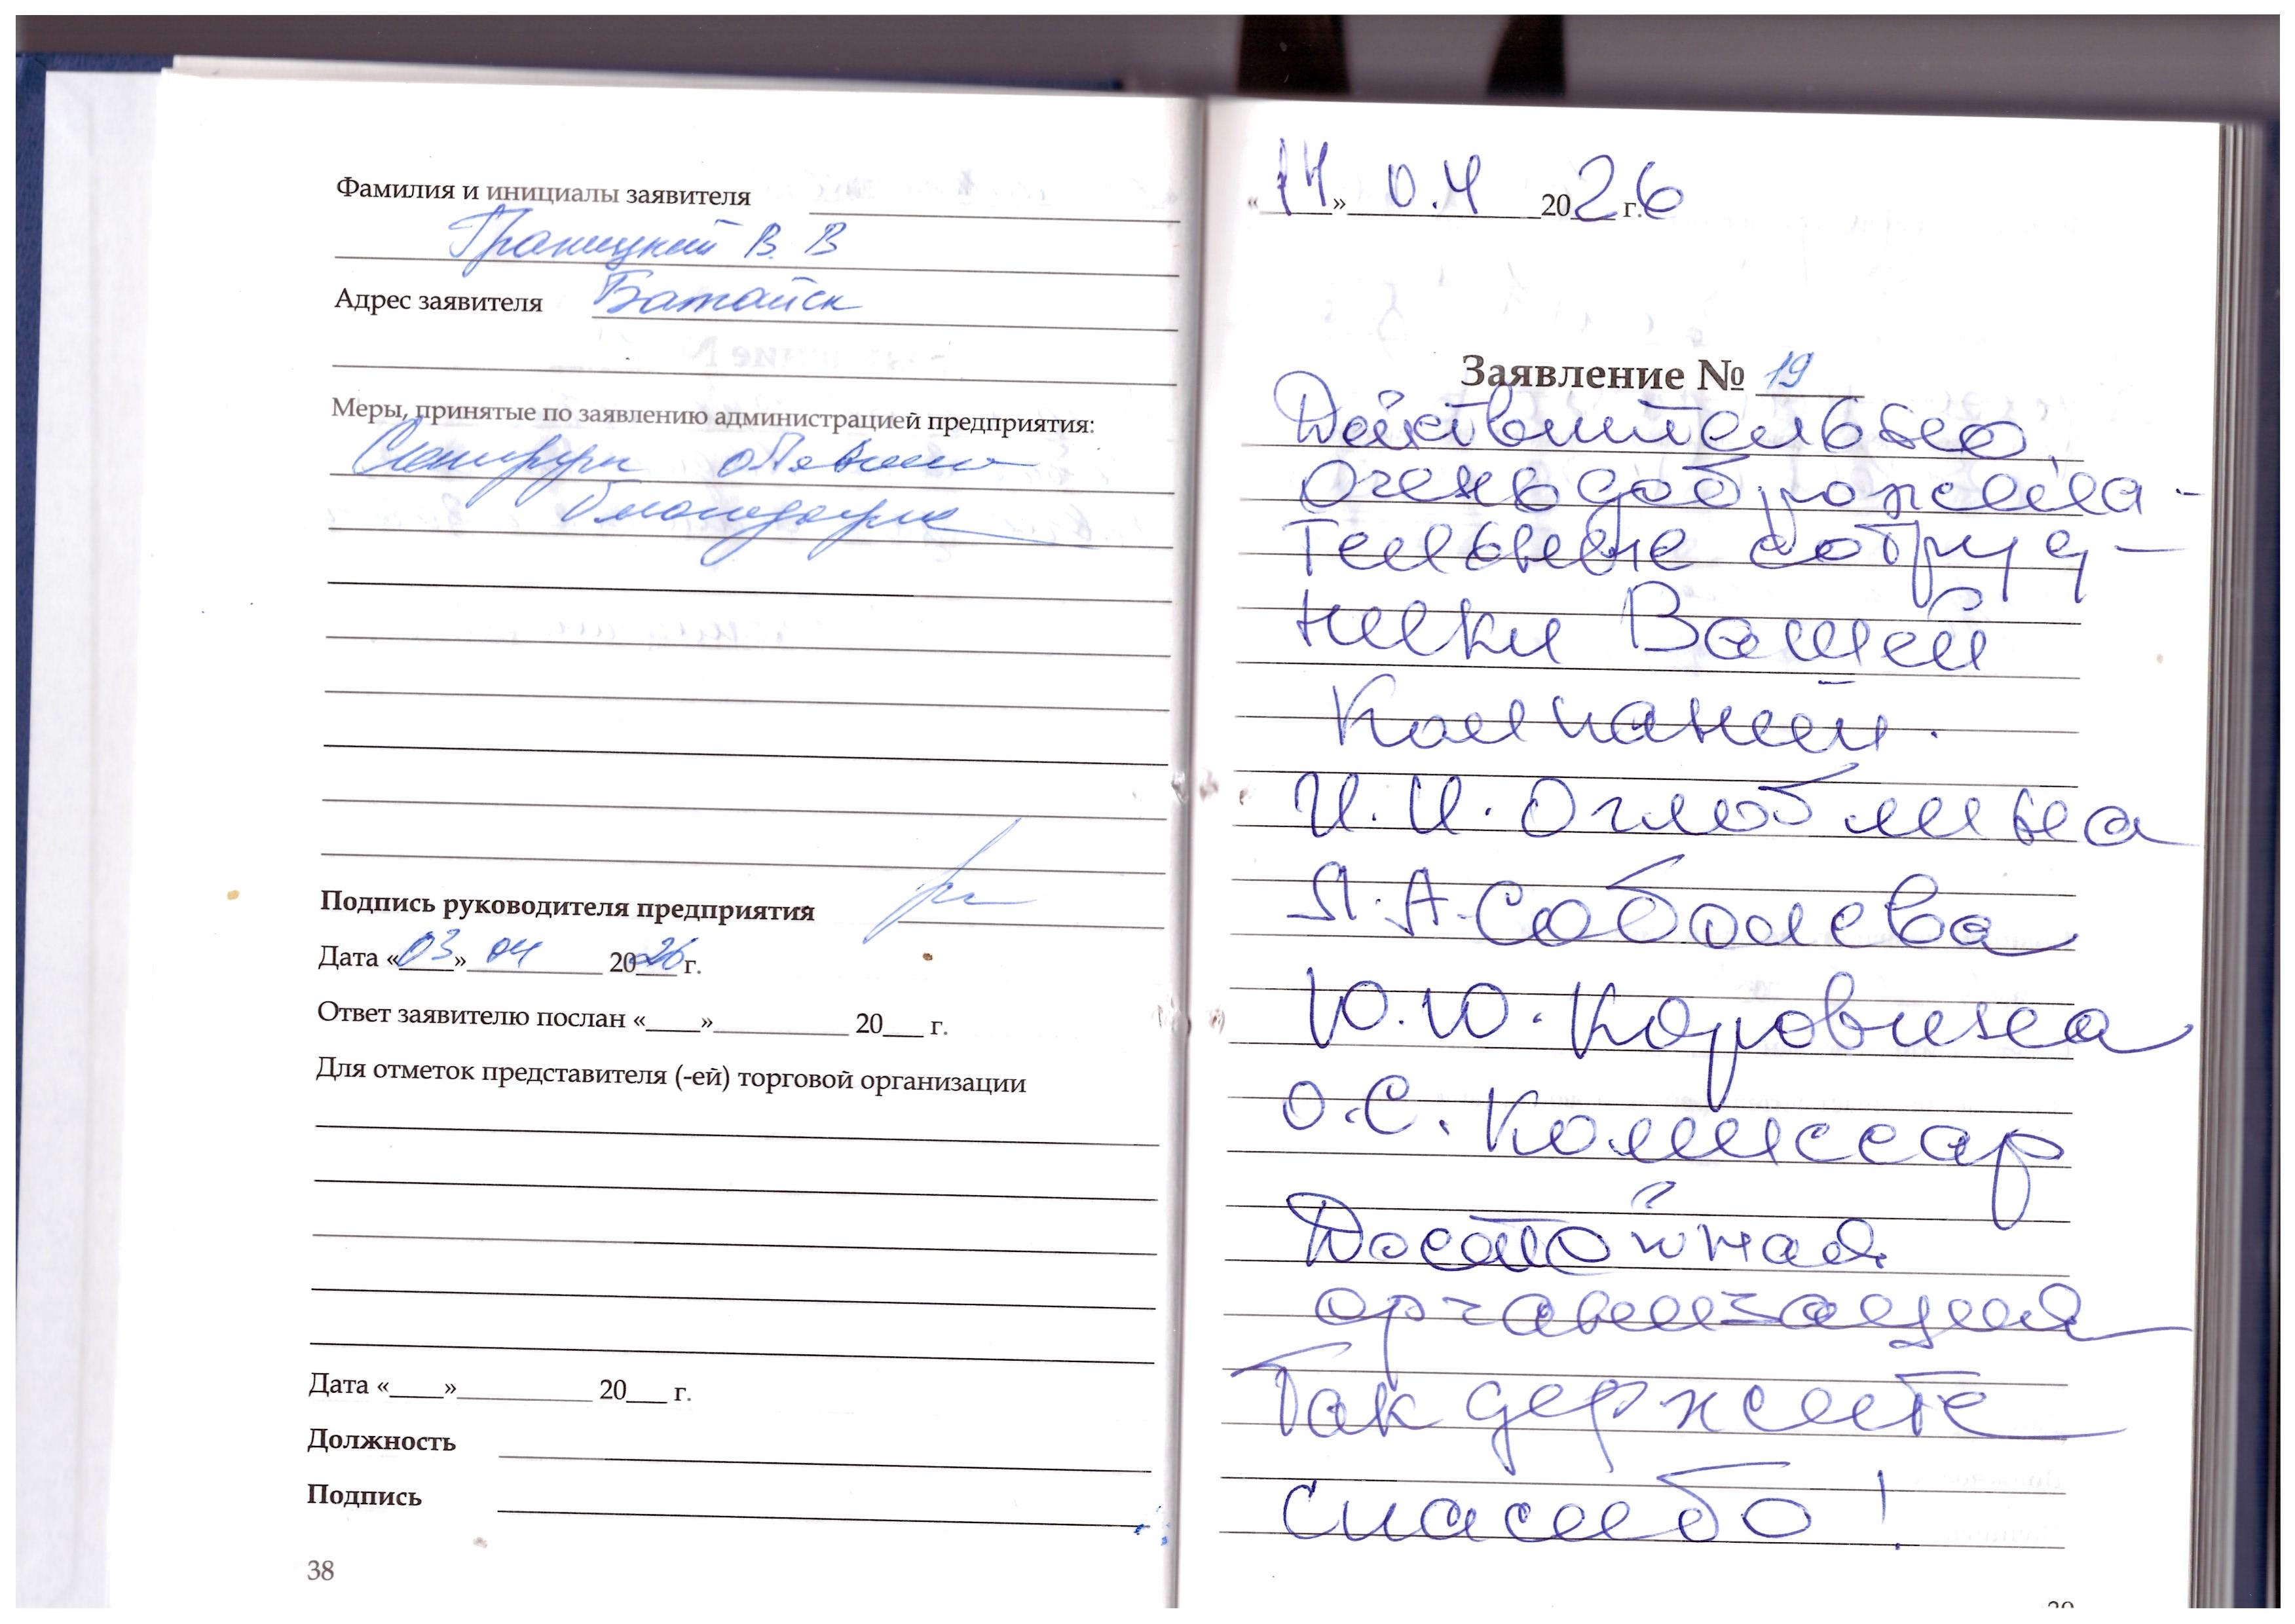 Фамилия и инициалы заявителя
Границкий В. В
Адрес заявителя Батайск
Меры, принятые по заявлению администрацией предприятия:
благодарн
Подпись руководителя предприятия
Дата «03» 04 2026 г.
Ответ заявителю послан «____»__________ 20___ г.
Для отметок представителя (-ей) торговой организации
Дата «____»__________ 20___ г.
Должность
Подпись
38
«14» 0.4 2026 г.
Заявление № 19
Действительно,
очень доброжела-
тельные сотруд-
ники Вашей
Компании.
И.И. Оглоблина
Я.А. Соболева
Ю.Ю. Коровина
О.С. Комиссар
Достойная
организация
Так держите
Спасибо!